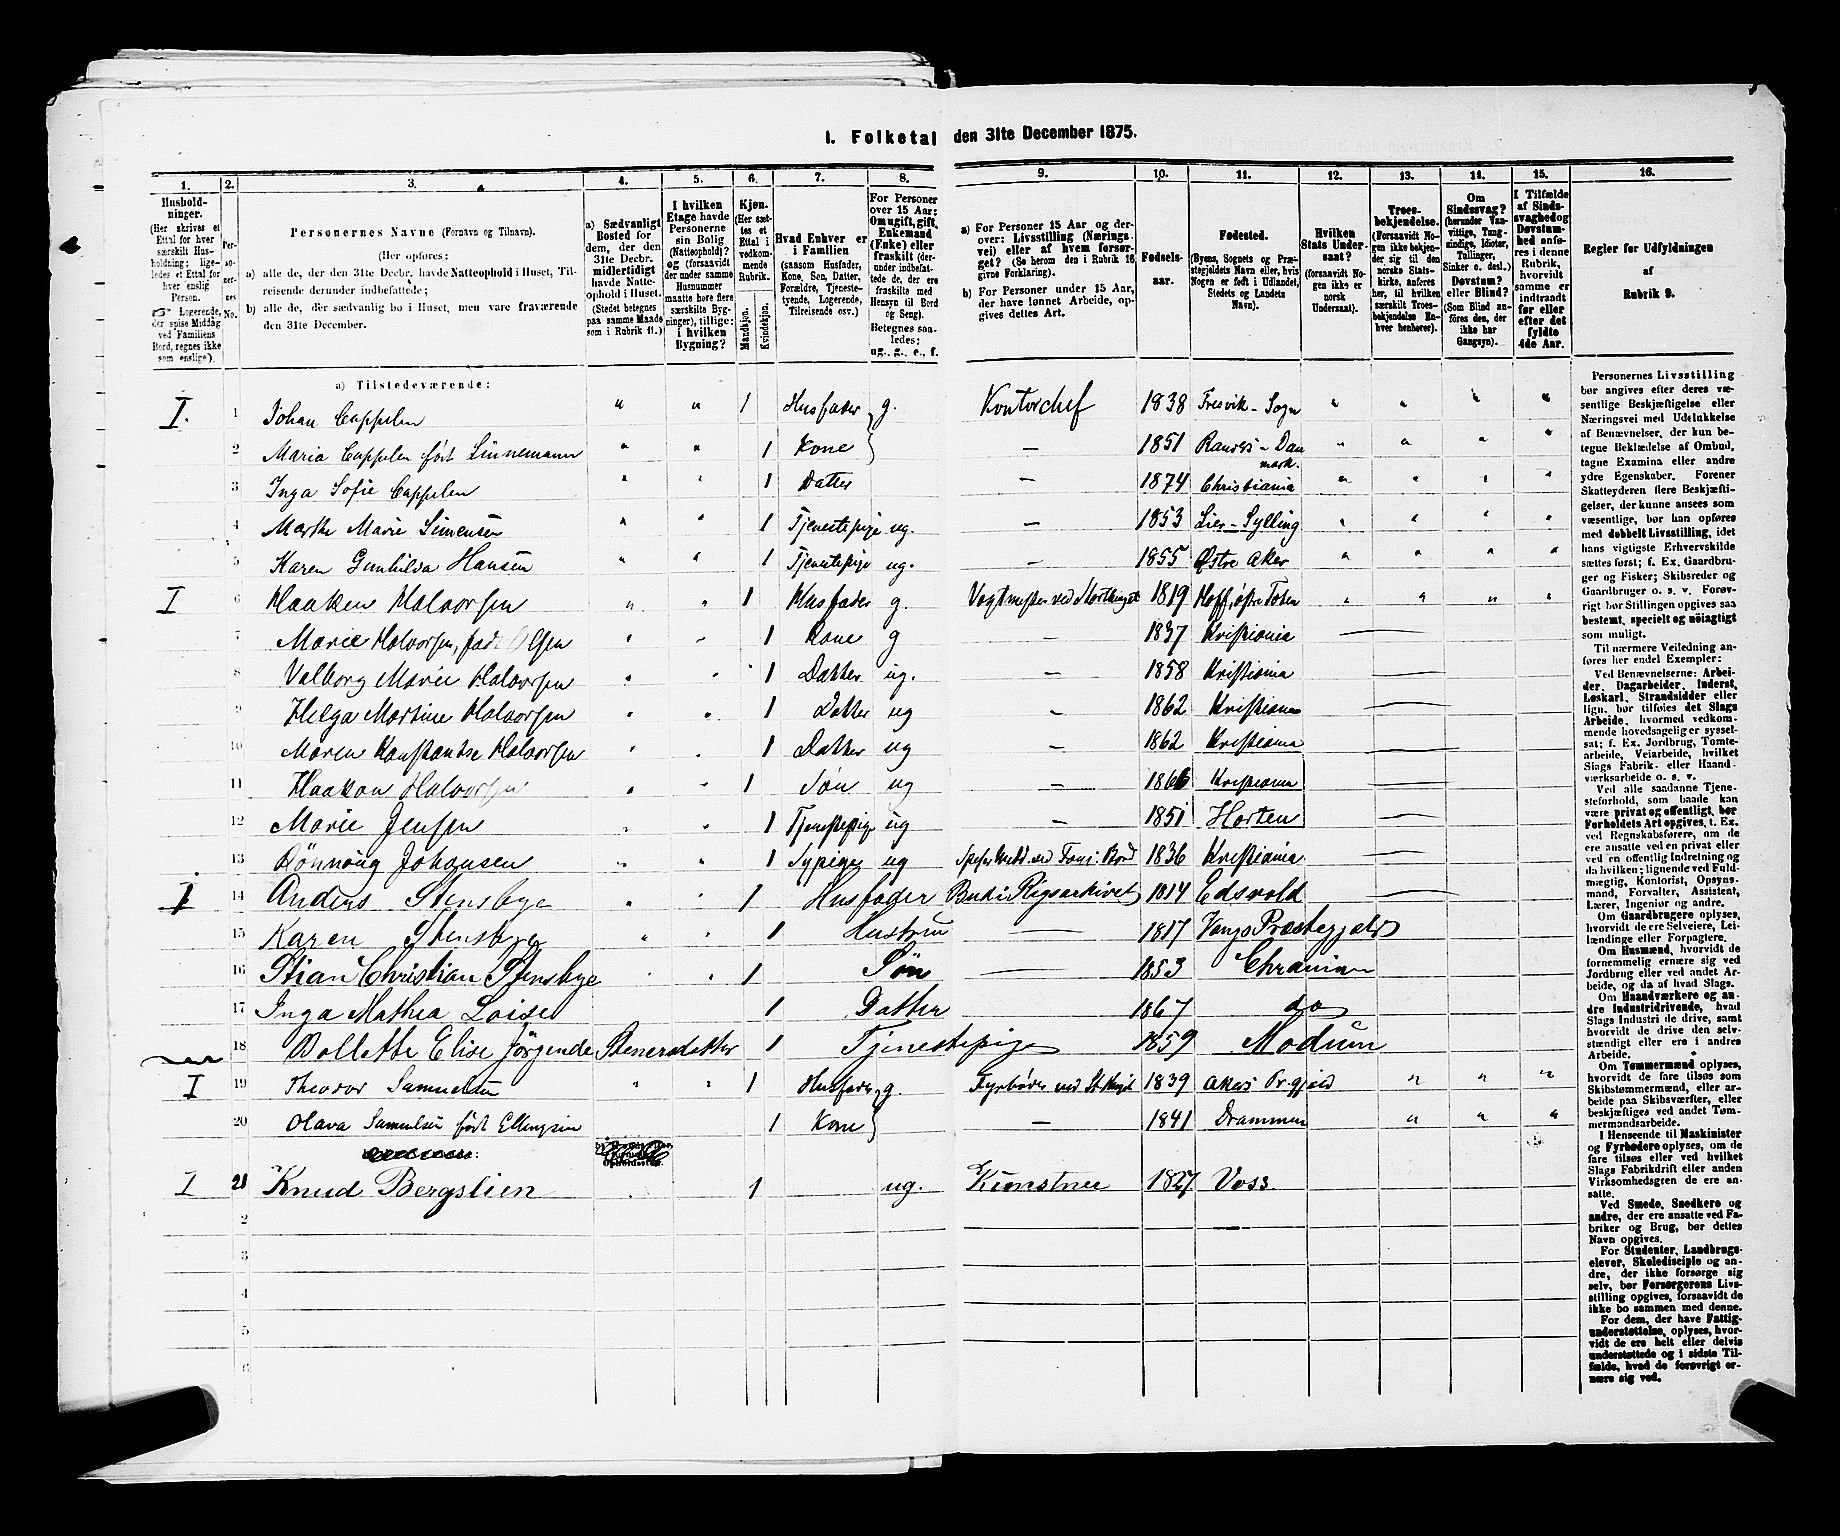 1. Folketal den 31te December 1875.
1. 2. 3. 4. 5. 6. 7. 8. 9. 10. 11. 12. 13. 14. 15. 16.
Husholdninger.
(Her skrives et
Ettal for hver
særskilt Husholdning;
ligeledes et Ettal for
hver enslig
Person.
Logerende,
der spise Middag
ved Familiens
Bord, regnes ikke
som enslige).
Personernes No.
Personernes Navne (Fornavn og Tilnavn).
(Her opføres:
a) alle de, der den 31te Decbr. havde Natteophold i Huset, Tilreisende
derunder indbefattede;
b) alle de, der sædvanlig bo i Huset, men vare fraværende
den 31te December.
a) Sædvanligt
Bosted for
dem, der den
31te Decbr.
midlertidigt
havde Natteophold
i Huset.
(Stedet betegnes
paa samme Maade
som i Rubrik 11.)
I hvilken
Etage havde
Personerne
sin Bolig
(Natteophold)?
og (forsaavidt
der under samme
Husnummer
maatte høre flere
særskilte Bygninger),
tillige:
i hvilken
Bygning?
Kjøn.
(Her sættes
et
Ettal i
vedkommende
Rubrik.
Mandkjøn.
Kvindekjøn.
Hvad Enhver er
i Familien
(saasom Husfader,
Kone, Søn, Datter,
Forældre, Tjenestetyende,
Logerende,
Tilreisende osv.)
For Personer
over 15 Aar:
Omugift, gift,
Enkemand
(Enke) eller
fraskilt (derunder
indbefattede
de, der ere
fraskilte med
Hensyn til Bord
og Seng).
Betegnes saaledes:
ug., g., e., f.
a) For Personer 15 Aar og derover:
Livsstilling (Næringsvei)
eller af hvem forsørget?
(Se herom den i Rubrik 16
givne Forklaring).
b) For Personer under 15 Aar,
der have lønnet Arbeide, opgives
dettes Art.
Fødselsaar.
Fødested.
(Byens, Sognets og Præstegjeldets
Navn eller, hvis
Nogen er født i Udlandet,
Stedets og Landets
Navn).
Hvilken
Stats Undersaat?
(forsaavidt Nogen
ikke er
norsk
Undersaat).
Troesbekjendelse.
(Forsaavidt Nogen
ikke bekjender
sig til den
norske Statskirke,
anføres
her, til hvilken
særskilt Troesbekjendelse
Enhver
henhører).
Om
Sindssvag?
(herunder Vanvittige,
Tungsindige,
Idioter,
Tullinger,
Sinker o. desl.)
Døvstum?
eller Blind?
(Som Blind anføres
den, der
ikke har
Gangsyn).
I Tilfælde
af Sindssvaghed
og
Døvstumhed
anføres
i denne
Rubrik,
hvorvidt
samme er
indtraadt
før eller
efter det
fyldte
4de Aar.
Regler for Udfyldningen
af
Rubrik 9.
a) Tilstedeværende:
I. 1 Johan Cappelen " " 1 Husfader g. Kontorchef 1838 Fresvik - Sogn " " " "
2 Maria Cappelen født Linnemann " " 1 Kone — 1851 Randers - Danmark. " " " "
3 Inga Sofie Cappelen " " 1 Datter — 1874 Christiania " " " "
4 Marthe Marie Simensen " " 1 Tjenestepige ug. — 1853 Lier - Sylling " " " "
5 Karen Gunhilda Hansen " " 1 Tjenestepige ug. — 1855 Østre Aker " " " "
I 6 Haaken Halvorsen " " 1 Husfader g. Vagtmester ved Storthinget 1819 Hoff, østre Toten " " " "
7 Marie Halvorsen, født Olsen " " 1 Kone g — 1837 Kristiania —
8 Valborg Marie Halvorsen " " 1 Datter ug. — 1858 Kristiania —
9 Helga Martine Halvorsen " " 1 Datter ug — 1862 Kristiania —
10 Maren Konstantse Halvorsen " " 1 Datter ug — 1862 Kristiania —
11 Haakon Halvorsen " " 1 Søn ug — 1866 Kristiania —
12 Marie Jensen " " 1 Tjenestepige ug — 1851 Horten —
13 Dønnoug Johansen " " 1 Sypige ug 1836 Kristiania —
I 14 Anders Stensbye " " 1 Husfader Bud i Rigsarkivet 1814 Edsvold —
15 Karen Stensbye " " 1 Hustru — 1817 Vangs Præstegjeld
16 Stian Christian Stensbye " " 1 Søn — 1853 Chrania
17 Inga Mathea Loise 1 Datter 1867 do
18 Bollette Elise Jörgende Stenersdatter 1 Tjenestepige 1859 Modum
I 19 Theodor Samuelsen " " 1 Husfader g. Fyrbøder ved St. 1839 Akers Pr.gjeld " " "
20 Olava Samuelsen født Ellingsen 1 Kone — 1841 Drammen " " "
I 21 Knud Bergslien 1 ug. Kunstner 1827 Voss.
2
3
4
5
6
Personernes Livsstilling
bør angives efter deres væsentlige
Beskjæftigelse eller
Næringsvei med Udelukkelse
af Benævnelser, der kun betegne
Beklædelse af Ombud,
tagne Examina eller andre
ydre Egenskaber. Forener
Skatteyderen flere Beskjæftigelser,
der kunne ansees som
væsentlige, bør han opføres
med dobbelt Livsstilling, idet
hans vigtigste Erhvervskilde
sættes først; f. Ex. Gaardbruger
og Fisker; Skibsreder og
Gaardbruger o. s. v. Forøvrigt
bør Stillingen opgives saa
bestemt, specielt og nöiagtigt
som muligt.
Til nærmere Veiledning anføres
her endel Exempler:
Ved Benævnelserne: Arbeider,
Dagarbeider, Inderst,
Løskarl, Strandsidder eller
lign. bør tilføies det Slags
Arbeide, hvormed vedkommende
hovedsagelig er sysselsat;
f. Ex. Jordbrug, Tomtearbeide,
Veiarbeide, hvilket
Slags Fabrik- eller Haandværksarbeide
o. s. v.
Ved alle saadanne Tjenesteforhold,
som baade kan
være privat og offentligt, bør
Forholdets Art opgives, t. Ex.
ved Regnskabsførere, om de
ere ansatte ved en privat eller
ved en offentlig Indretning og
da hvilken; lignende ved Fuldmægtig,
Kontorist, Opsynsmand,
Forvalter, Assistent,
Lærer, Ingeniør og andre.
Om Gaardbrugere oplyses,
hvorvidt de ere Selveiere, Leilændinge
eller Forpagtere.
Om Husmænd, hvorvidt de
fornemmelig ernære sig ved
Jordbrug eller ved andet Arbeide,
og da af hvad Slags.
Om Haandværkere og andre
Industridrivende, hvad
Slags Industri de drive, samt
hvorvidt de drive den selvstændigt
eller ere i andres
Arbeide.
Om Tømmermænd oplyses,
hvorvidt de fare tilsøs som
Skibstømmermænd, eller arbeide
paa Skibsværfter, eller
beskjæftiges ved andet Tømmermandsarbeide.
I Henseende til Maskinister
og Fyrbødere oplyses, om de
fare tilsøs eller ved hvilket
Slags Fabrikdrift eller anden
Virksomhedsgren de ere ansatte.
Ved Smede, Snedkere og
andre, der ere ansatte ved Fabriker
og Brug, bør dettes
Navn opgives.
For Studenter, Landbrugselever,
Skoledisciple og andre,
der ikke forsørge sig
selv, bør Forsørgerens Livsstilling
opgives, forsaavidt de
ikke bo sammen med denne.
For dem, der have Fattigunderstøttelse,
oplyses, hvorvidt
de ere helt eller delvis
understøttede og i sidste Tilfælde,
hvad de forøvrigt ernære
sig ved.